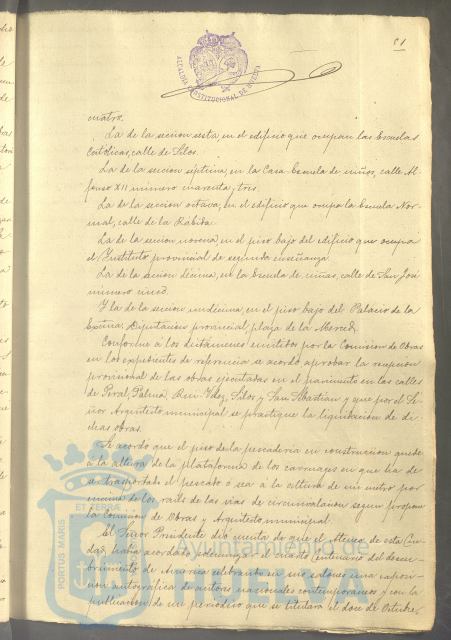 81
ALCALDIA CONSTITUCIONAL DE HUELVA
cuatro.
La de la seccion sesta, en el edificio que ocupan las Escuelas
Católicas, calle de Silos.
La de la seccion séptima, en la Casa-Escuela de niños, calle Al-
fonso XII número cuarenta y tres.
La de la seccion octava, en el edificio que ocupa la Escuela Nor-
mal, calle de la Rábida.
La de la seccion novena, en el piso bajo del edificio que ocupa
el Instituto provincial de segunda enseñanza.
La de la seccion décima, en la Escuela de niñas, calle de San José
número cinco.
Y la de la seccion undécima, en el piso bajo del Palacio de la
Excma. Diputacion provincial, plaza de la Merced.
Conforme á los dictámenes emitidos por la Comision de Obras
en los expedientes de referencia se acordó aprobar la recepcion
provisional de las obras ejecutadas en el pavimento en las calles
de Peral, Palma, Silos y San Sebastian y que por el Se-
ñor Arquitecto municipal se practique la liquidacion de di-
chas obras.
Se acordó que el piso de la pescadería en construccion quede
á la altura de la plataforma de los carruajes en que ha de
transportarse el pescado ó sea á la altura de un metro por
encima de los rails de las vias de circunvalacion segun propone
la Comision de Obras y Arquitecto municipal.
El Señor Presidente dió cuenta de que el Ateneo de esta Ciu-
dad, habia acordado solemnizar el cuarto Centenario del descu-
brimiento de America celebrando en sus salones una exposi-
cion autográfica de autores nacionales contemporáneos y con la
publicacion de un periodico que se titulará el doce de Octubre,
PORTUS MARIS ET TERRÆ
Ayuntamiento de
HUELVA